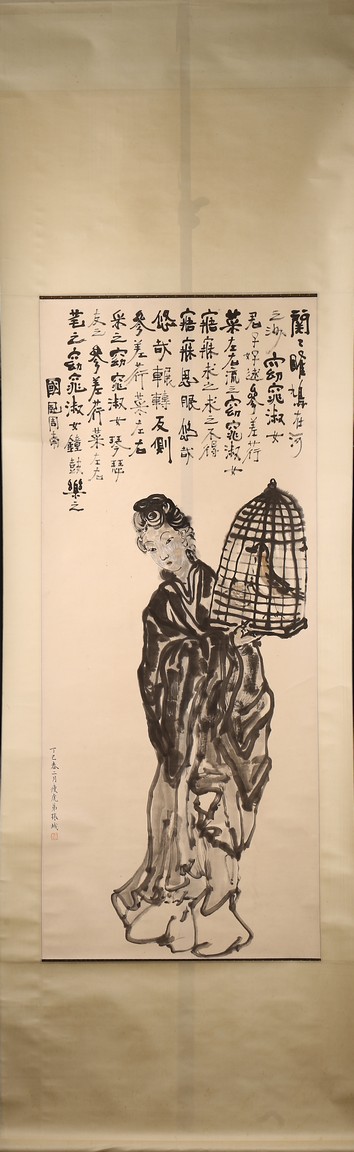 關關雎鳩在河
之洲窈窕淑女
君子好逑參差荇
菜左右流之窈窕淑女
寤寐求之求之不得
寤寐思服悠哉
悠哉輾轉反側
參差荇菜左右
采之窈窕淑女琴瑟
友之參差荇菜左右
芼之窈窕淑女鐘鼓樂之
國風周南
丁巳春二月